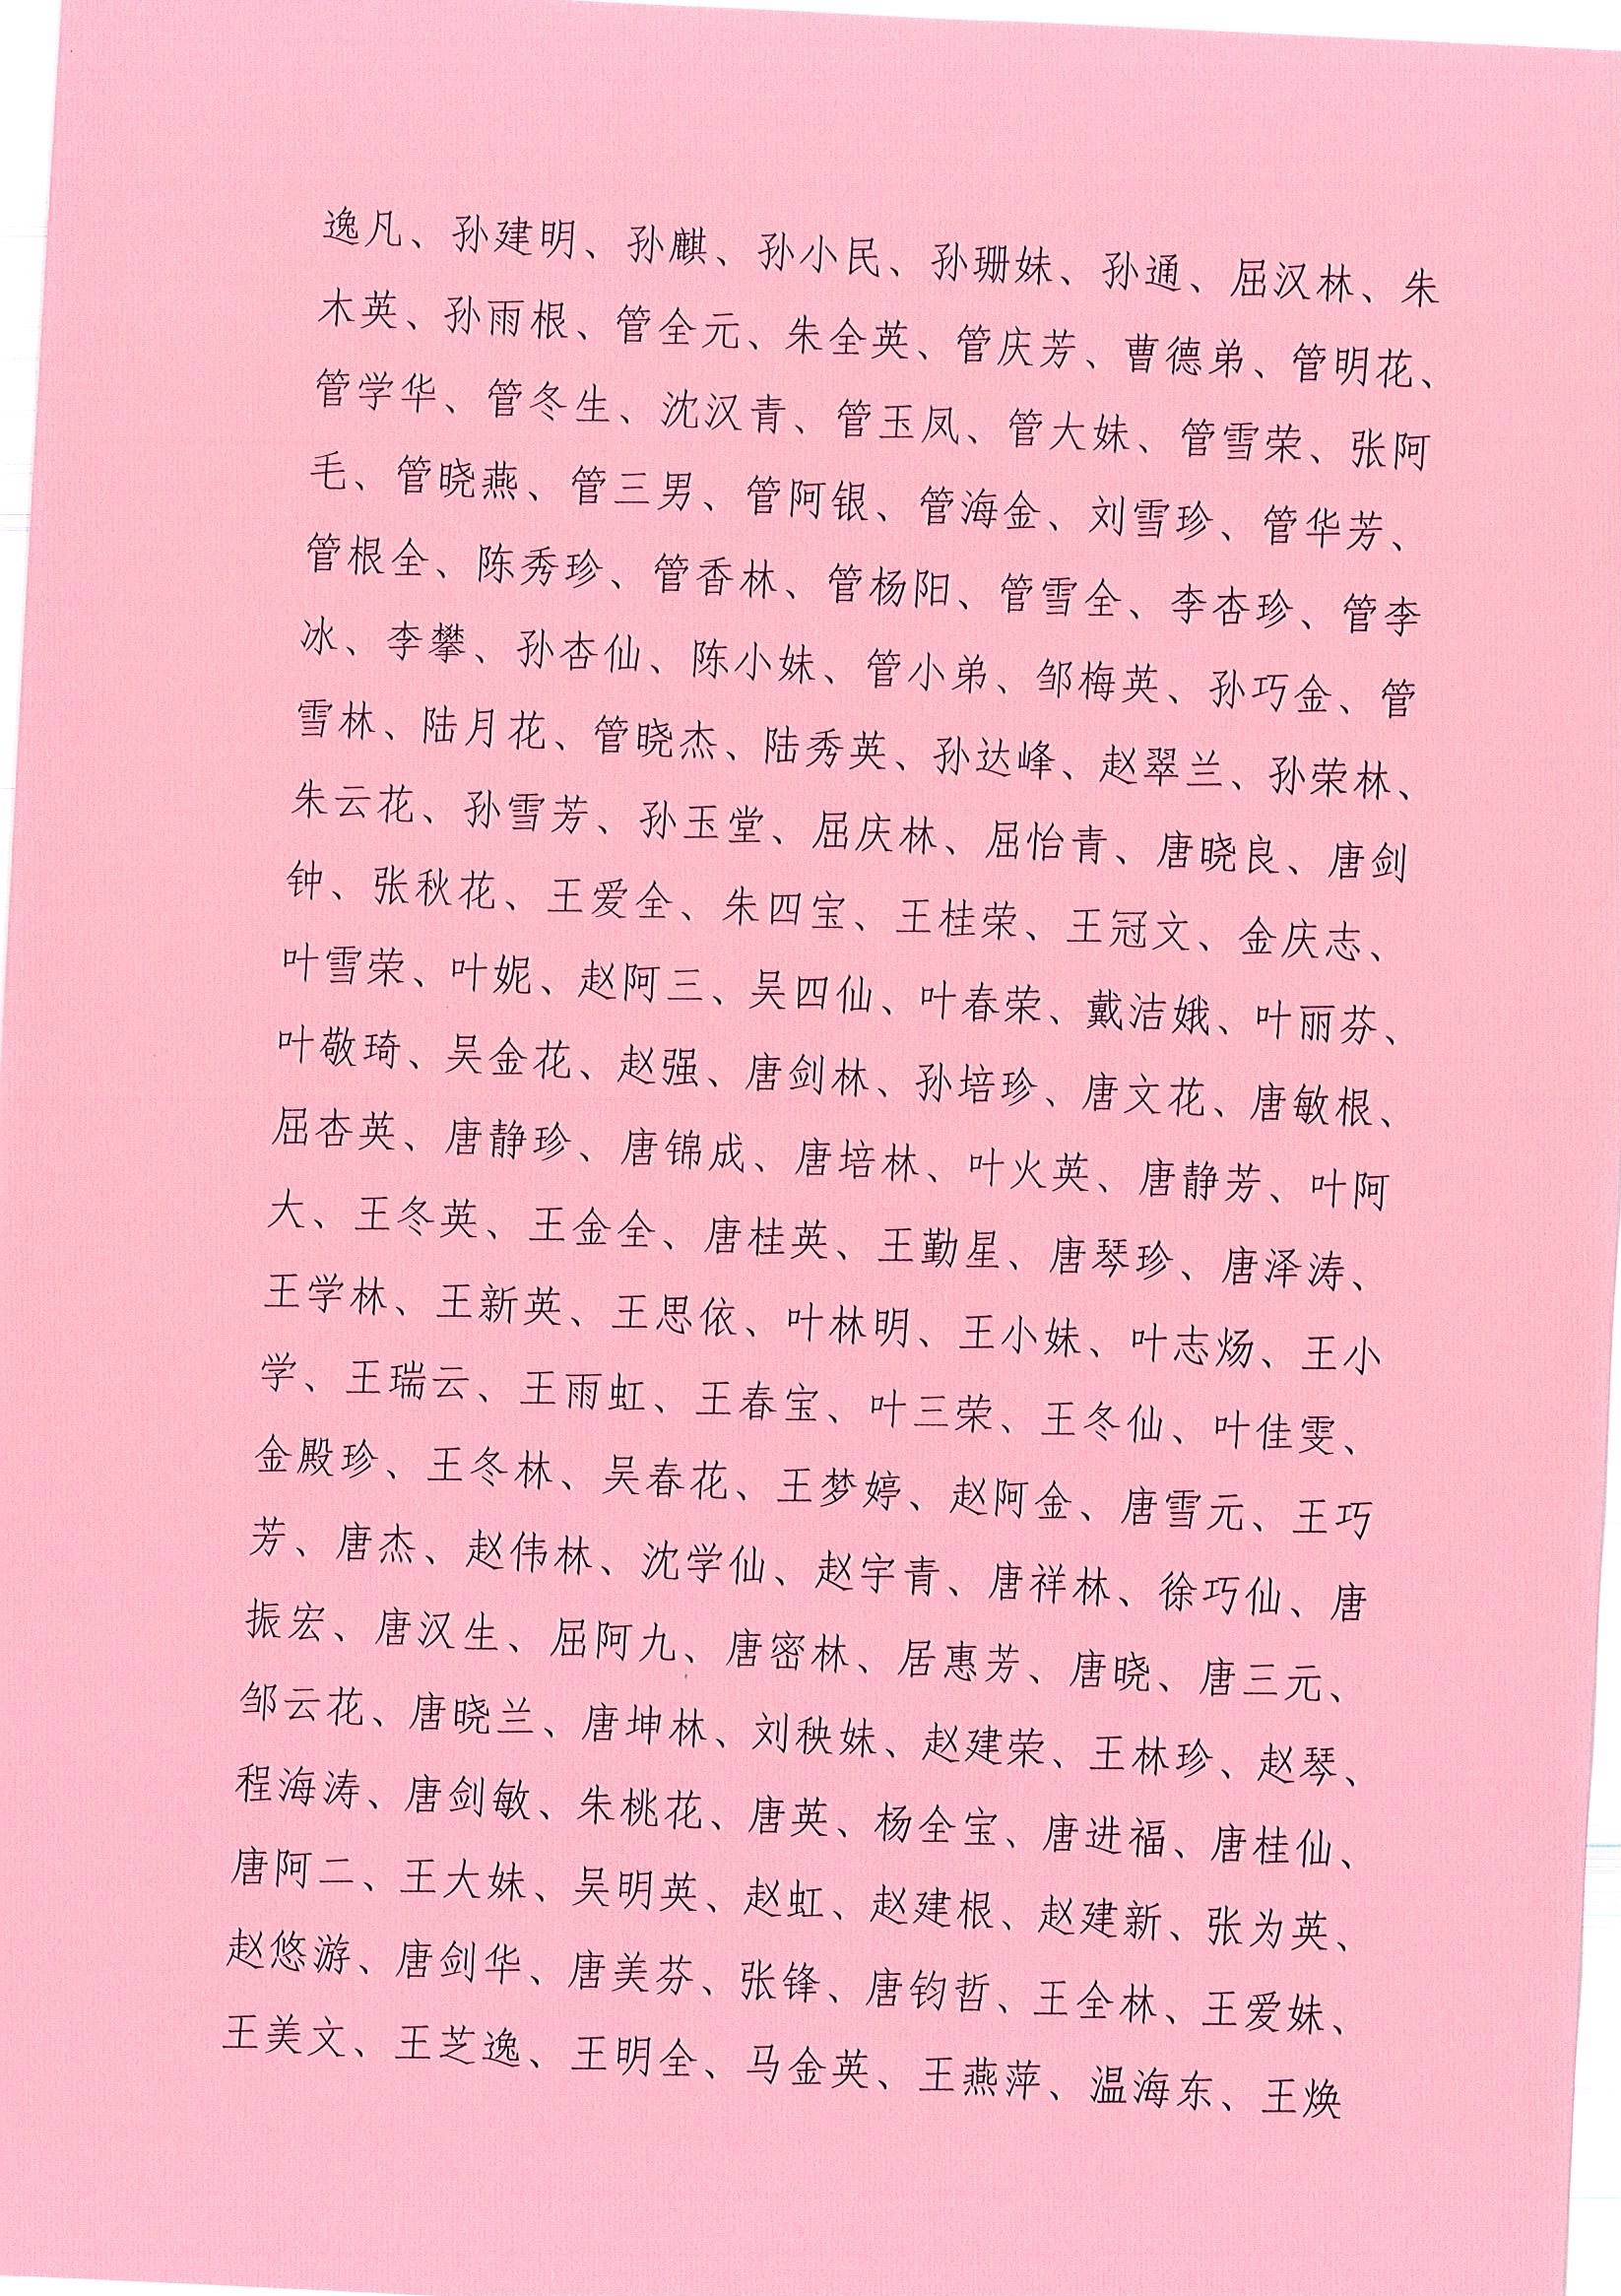 逸凡、孙建明、孙麒、孙小民、孙珊妹、孙通、屈汉林、朱
木英、孙雨根、管全元、朱全英、管庆芳、曹德弟、管明花、
管学华、管冬生、沈汉青、管玉凤、管大妹、管雪荣、张阿
毛、管晓燕、管三男、管阿银、管海金、刘雪珍、管华芳、
管根全、陈秀珍、管香林、管杨阳、管雪全、李杏珍、管李
冰、李攀、孙杏仙、陈小妹、管小弟、邹梅英、孙巧金、管
雪林、陆月花、管晓杰、陆秀英、孙达峰、赵翠兰、孙荣林、
朱云花、孙雪芳、孙玉堂、屈庆林、屈怡青、唐晓良、唐剑
钟、张秋花、王爱全、朱四宝、王桂荣、王冠文、金庆志、
叶雪荣、叶妮、赵阿三、吴四仙、叶春荣、戴洁娥、叶丽芬、
叶敬琦、吴金花、赵强、唐剑林、孙培珍、唐文花、唐敏根、
屈杏英、唐静珍、唐锦成、唐培林、叶火英、唐静芳、叶阿
大、王冬英、王金全、唐桂英、王勤星、唐琴珍、唐泽涛、
王学林、王新英、王思依、叶林明、王小妹、叶志炀、王小
学、王瑞云、王雨虹、王春宝、叶三荣、王冬仙、叶佳雯、
金殿珍、王冬林、吴春花、王梦婷、赵阿金、唐雪元、王巧
芳、唐杰、赵伟林、沈学仙、赵宇青、唐祥林、徐巧仙、唐
振宏、唐汉生、屈阿九、唐密林、居惠芳、唐晓、唐三元、
邹云花、唐晓兰、唐坤林、刘秧妹、赵建荣、王林珍、赵琴、
程海涛、唐剑敏、朱桃花、唐英、杨全宝、唐进福、唐桂仙、
唐阿二、王大妹、吴明英、赵虹、赵建根、赵建新、张为英、
赵悠游、唐剑华、唐美芬、张锋、唐钧哲、王全林、王爱妹、
王美文、王芝逸、王明全、马金英、王燕萍、温海东、王焕